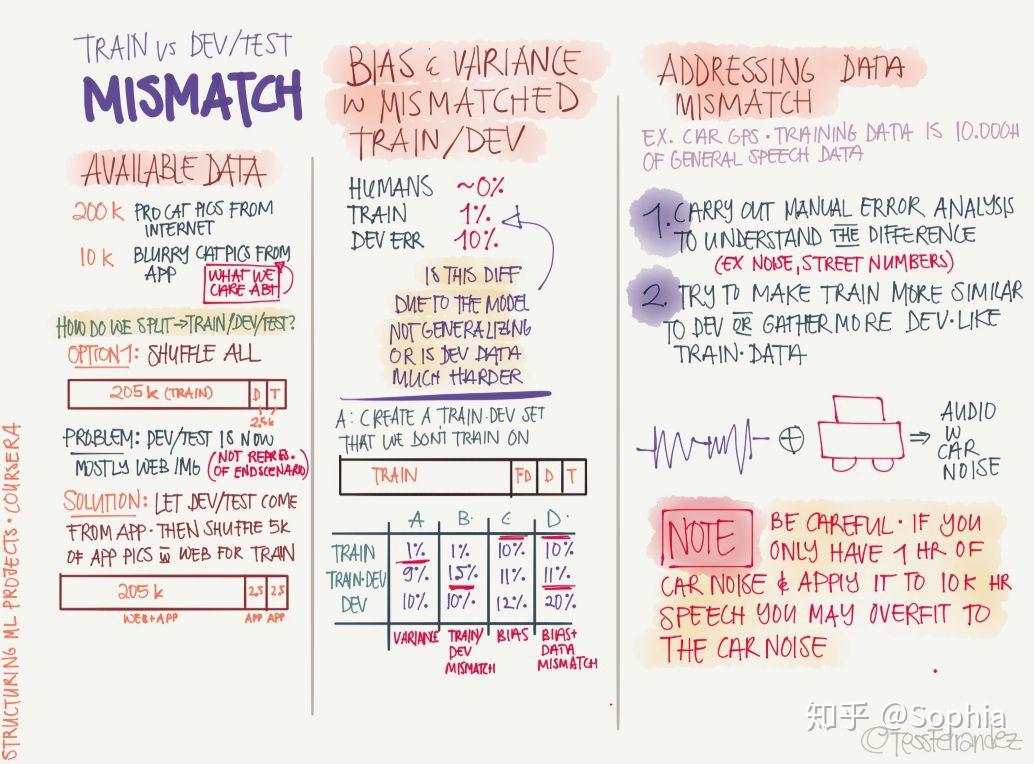 TRAIN vs DEV/TEST
MISMATCH
AVAILABLE DATA
200k PRO CAT PICS FROM
INTERNET
10k BLURRY CAT PICS FROM
APP
WHAT WE
CARE ABT
HOW DO WE SPLIT→TRAIN/DEV/TEST?
OPTION1: SHUFFLE ALL
205k (TRAIN) D T
2,5k
PROBLEM: DEV/TEST IS NOW
MOSTLY WEB IMG (NOT REPRES.
OF ENDSCENARIO)
SOLUTION: LET DEV/TEST COME
FROM APP. THEN SHUFFLE 5K
OF APP PICS W WEB FOR TRAIN
205k 2,5 2,5
WEB+APP APP APP
STRUCTURING ML PROJECTS · COURSERA
BIAS & VARIANCE
W MISMATCHED
TRAIN/DEV
HUMANS ~0%
TRAIN 1%
DEV ERR 10%
IS THIS DIFF
DUE TO THE MODEL
NOT GENERALIZING
OR IS DEV DATA
MUCH HARDER
A: CREATE A TRAIN·DEV SET
THAT WE DON'T TRAIN ON
TRAIN TD D T
A B C D
TRAIN 1% 1% 10% 10%
TRAIN·DEV 9% 1.5% 11% 11%
DEV 10% 10% 12% 20%
VARIANCE TRAIN/ BIAS BIAS+
DEV DATA
MISMATCH MISMATCH
ADDRESSING DATA
MISMATCH
EX. CAR GPS · TRAINING DATA IS 10.000H
OF GENERAL SPEECH DATA
1. CARRY OUT MANUAL ERROR ANALYSIS
TO UNDERSTAND THE DIFFERENCE
(EX NOISE, STREET NUMBERS)
2. TRY TO MAKE TRAIN MORE SIMILAR
TO DEV OR GATHER MORE DEV·LIKE
TRAIN·DATA
AUDIO
W
CAR
NOISE
NOTE
BE CAREFUL · IF YOU
ONLY HAVE 1 HR OF
CAR NOISE & APPLY IT TO 10K HR
SPEECH YOU MAY OVERFIT TO
THE CAR NOISE
知乎 @Sophia
@TessFerrandez